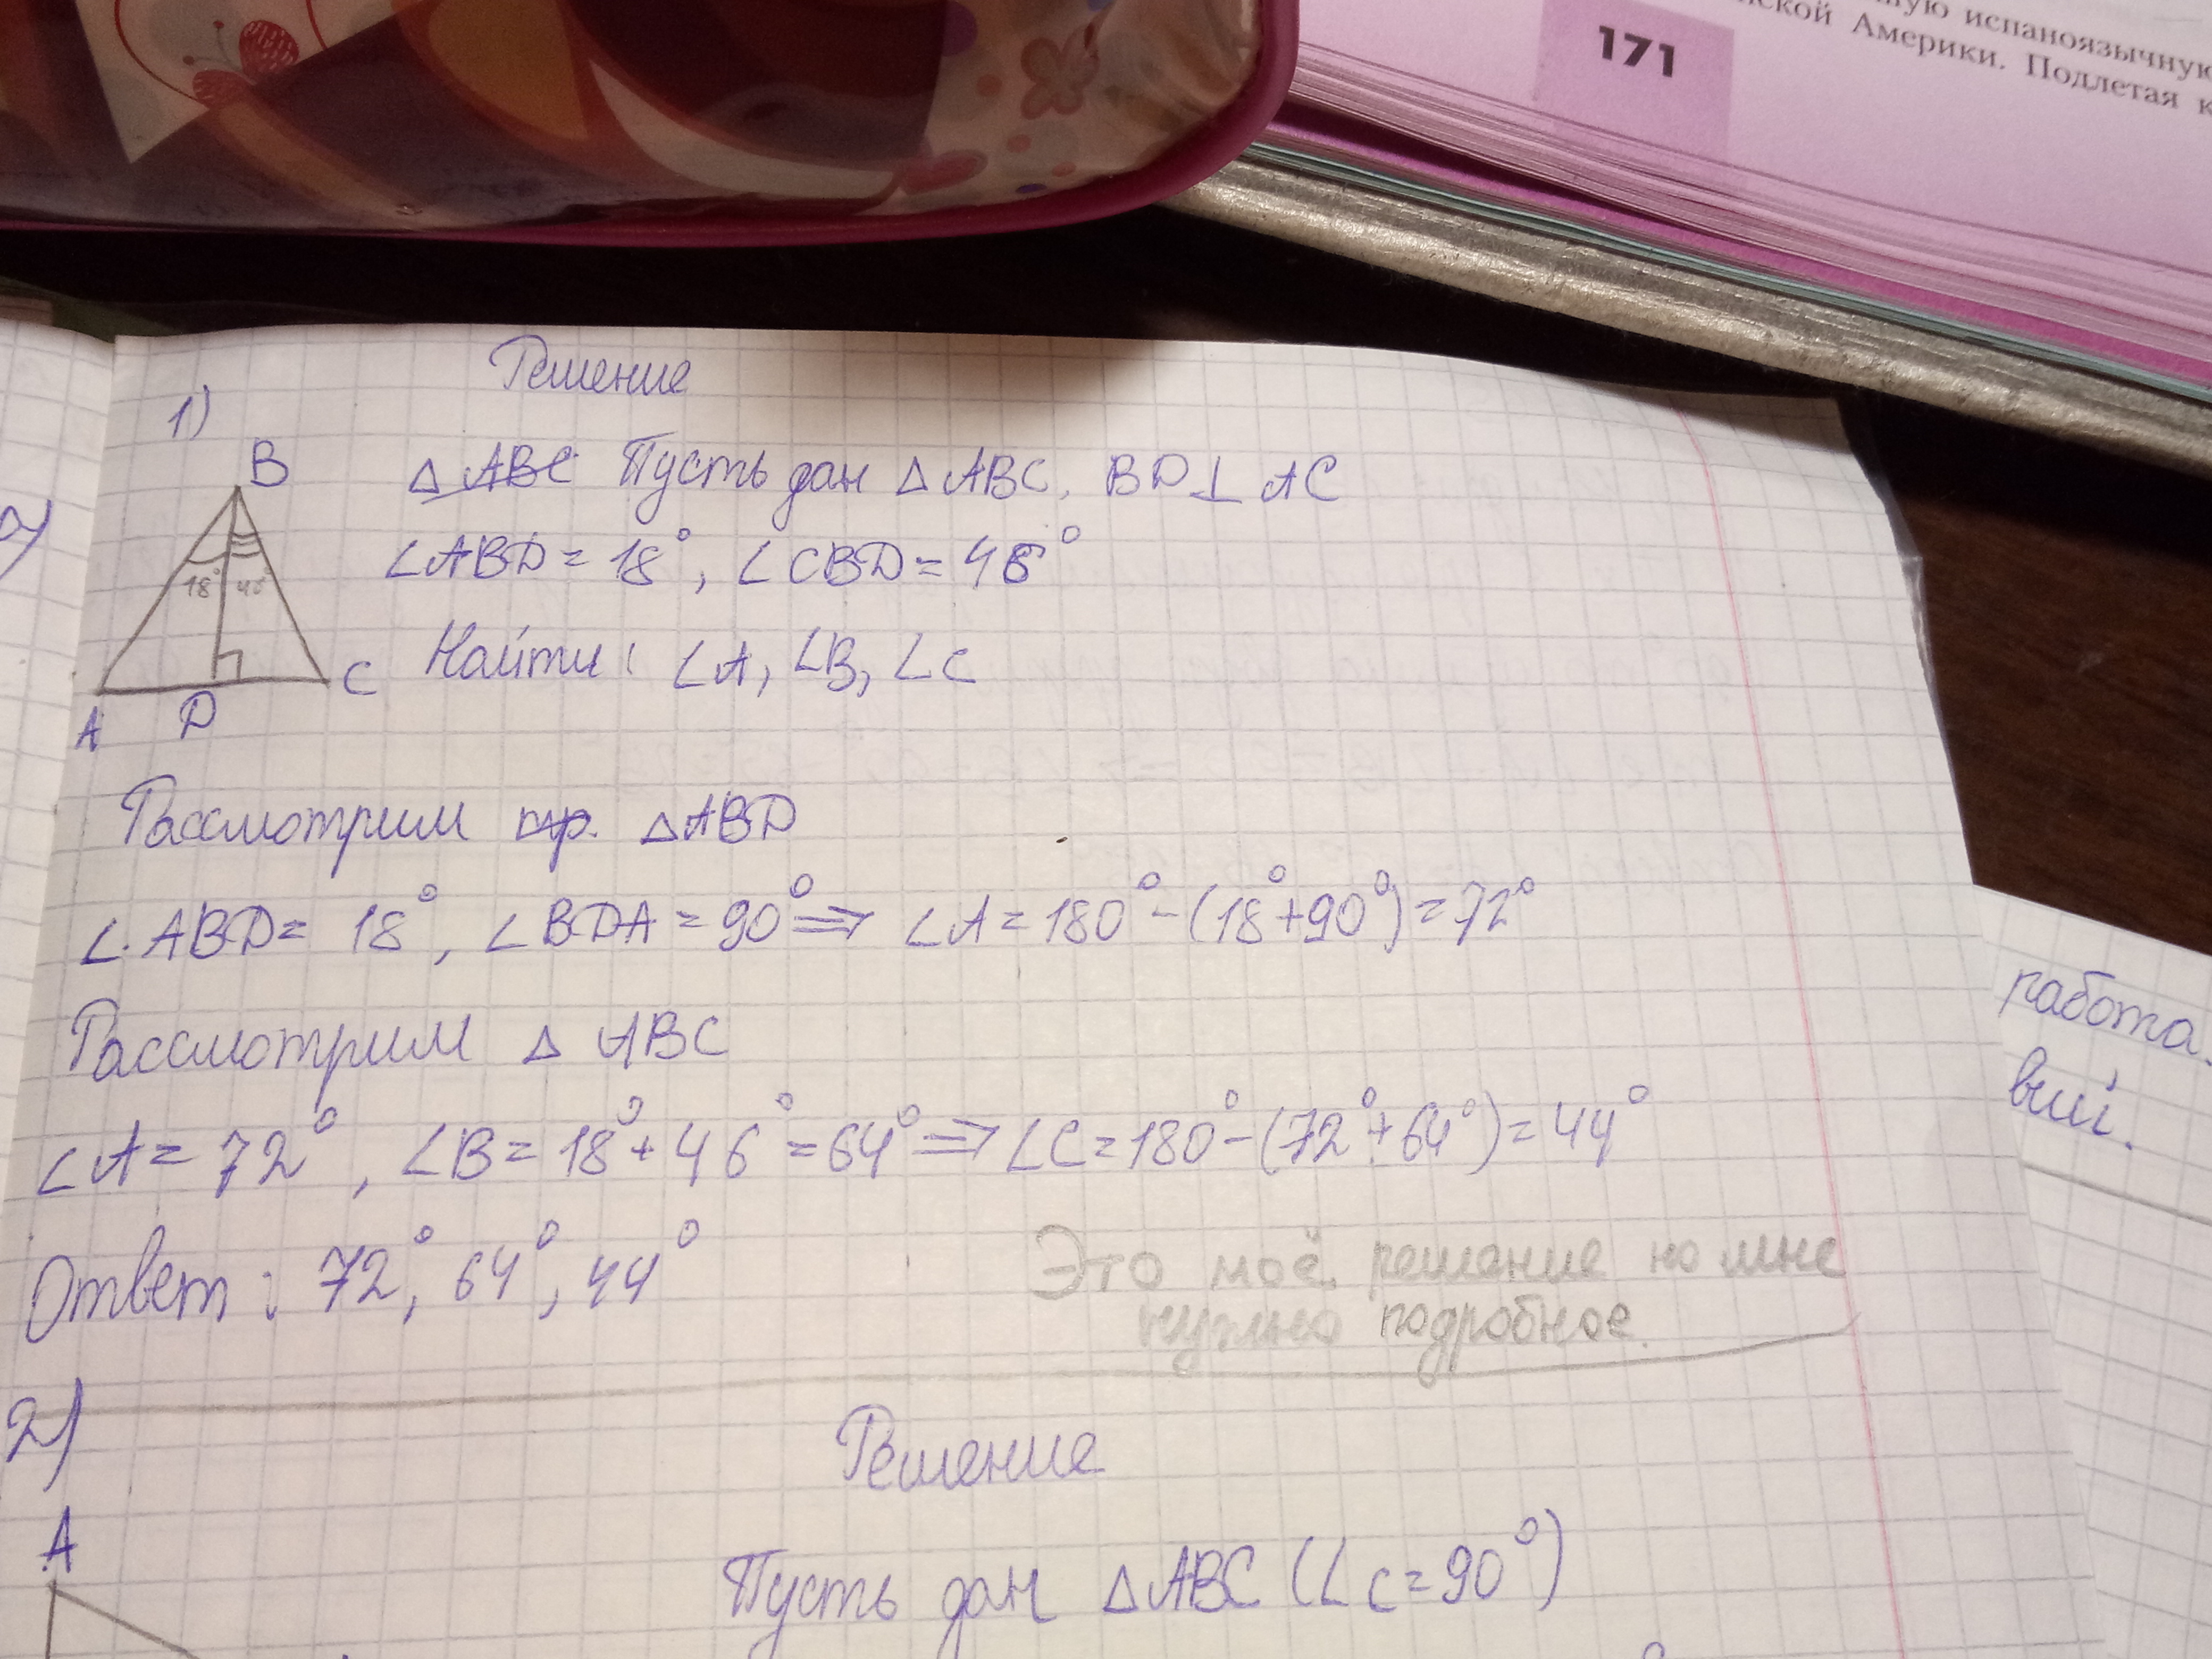 171
испаноязычную
Америки. Подлетая к
Решение
1)
B
△ ABC Пусть дан △ ABC, BD⊥AC
∠ABD = 18°, ∠CBD = 46°
18° 46°
Найти: ∠A, ∠B, ∠C
A D C
Рассмотрим тр. △ABD
∠ABD = 18°, ∠BDA = 90° ⇒ ∠A = 180° - (18° + 90°) = 72°
Рассмотрим △ ABC
∠A = 72°, ∠B = 18° + 46° = 64° ⇒ ∠C = 180° - (72° + 64°) = 44°
Ответ: 72°, 64°, 44°
Это моё решение но мне
нужно подробное.
работа.
2)
Решение
A
Пусть дан △ABC (∠C = 90°)